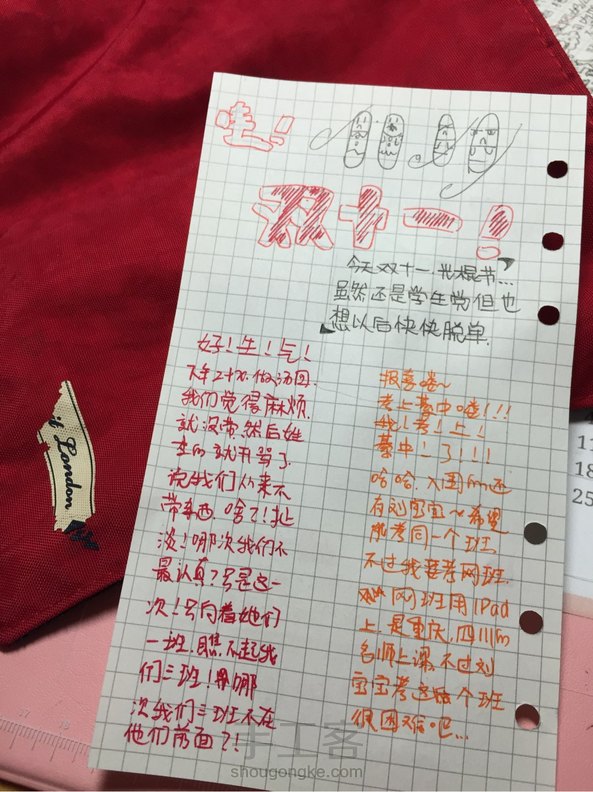 哇!
11.11
双十一!
今天双十一光棍节...
虽然还是学生党但也
想以后快快脱单.
好!生!气!
下午二十九.做汤圆.
我们觉得麻烦.
就没带.然后姓
李的就开骂了.
说我们从来不
带东西.啥了!扯
淡!哪次我们不
最认真?只是这一
次!只向着她们
一班.瞧不起我
们三班!哪
次我们三班不在
他们前面?!
报喜喽~
考上綦中喽!!!
我!考!上!
綦中!了!!!
哈哈.入围的还
有刘宝宝~希望
能考同一个班.
不过我要考网班.
网班用iPad
上.是重庆.四川的
名师上课.不过刘
宝宝考这个班
很困难吧...
London
11
18
25
手工客
shougongke.com